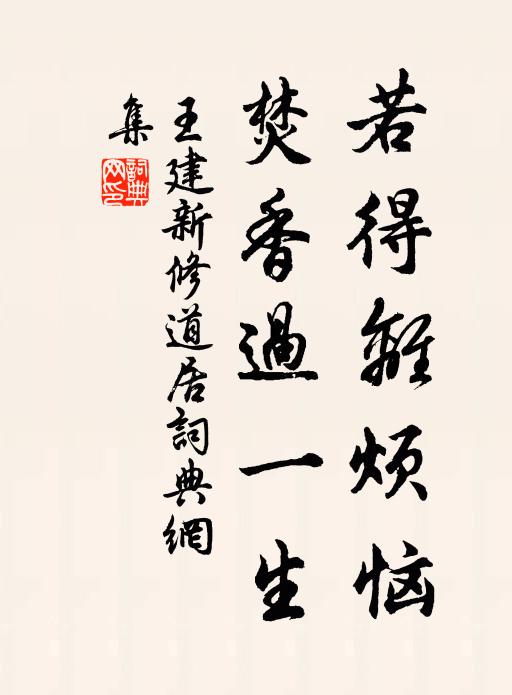 若得離烦恼
焚香過一生
王建新修道居詞典網
集
詞典网印